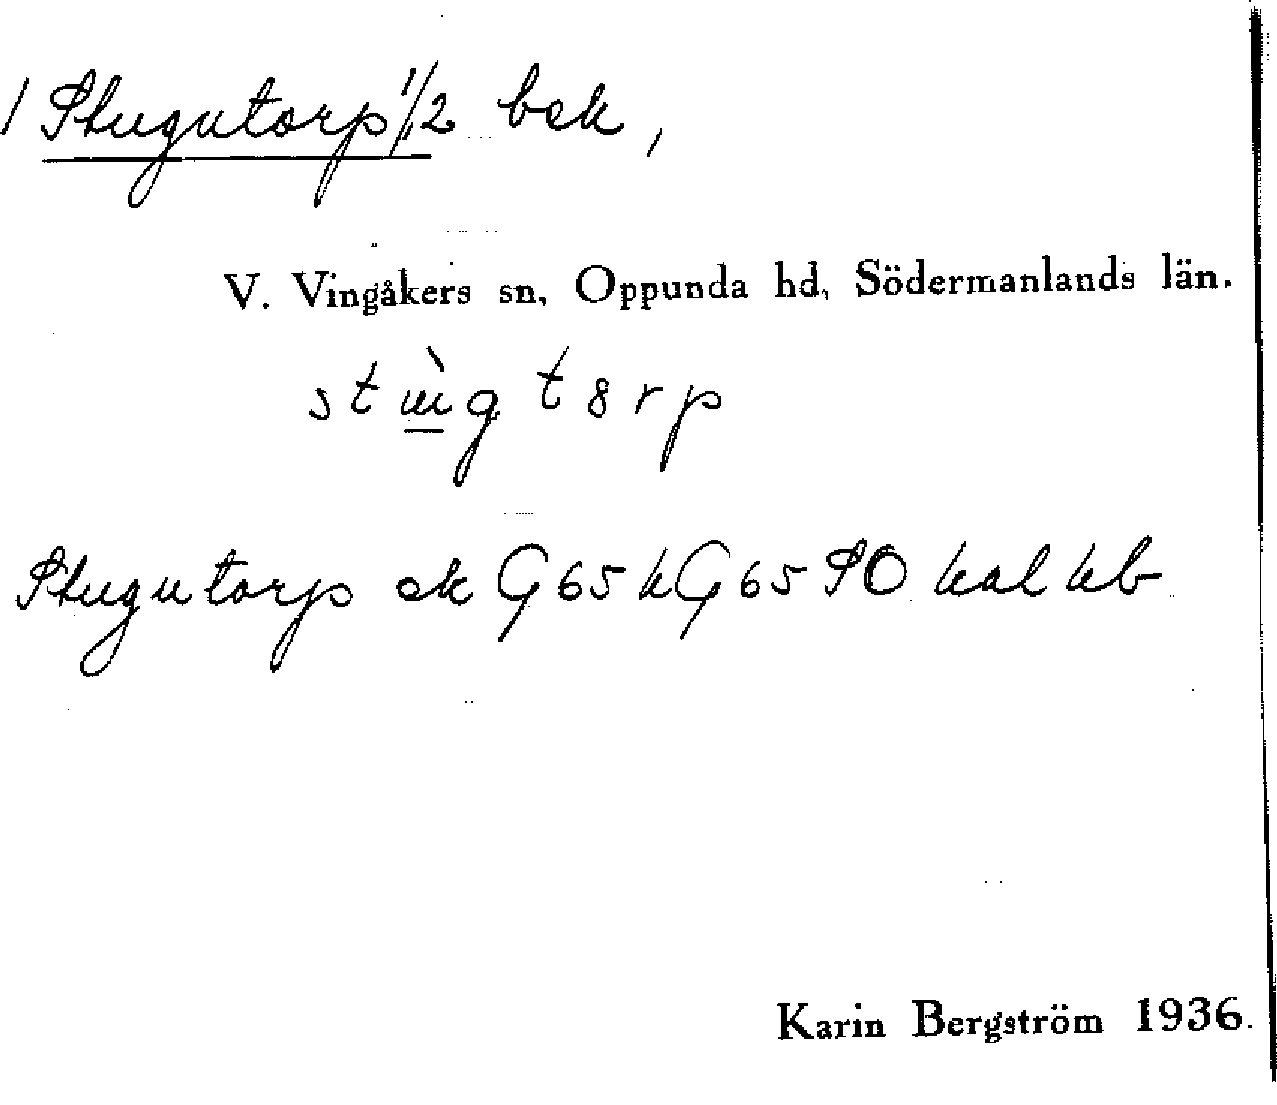 1 Stugutorp 1/2 bok,
V. Vingåkers sn, Oppunda hd, Södermanlands län.
Stugutorp ek G65 hG65 SO kal kb
Karin Bergström 1936.